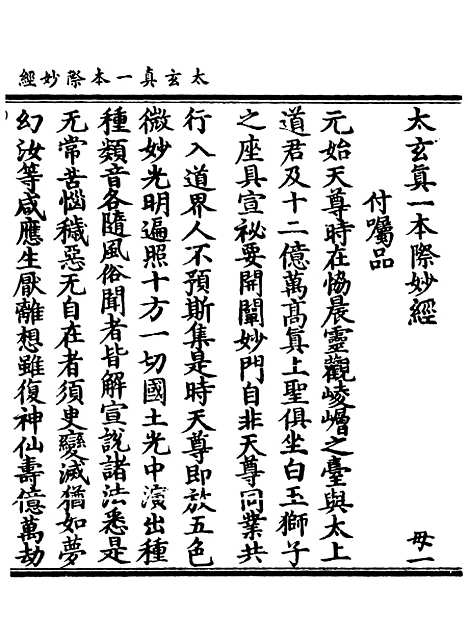 太玄真一本際妙經
太玄真一本際妙經 毋一
付囑品
元始天尊時在恊晨靈觀崚嶒之臺與太上
道君及十二億萬髙真上聖俱坐白玉獅子
之座具宣祕要開闡妙門自非天尊同業共
行入道界人不預斯集是時天尊即放五色
微妙光明遍照十方一切國土光中演出種
種類音各隨風俗聞者皆解宣說諸法悉是
无常苦惱穢惡无自在者須臾變滅猶如夢
幻汝等咸應生厭離想雖復神仙壽億萬劫